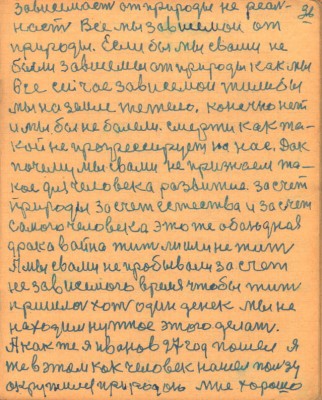 36
зависимост от природы не реал-
ност Все мы зависемои от
природы. Если бы мы свами не
были зависемы от природы как мы
все сийчас зависемои жили бы
мы на земле тежело. конечно нет
и мы бы не болели. смерти как та-
кой не прогрессирует на нас. Дак
почему мы свами не признаем та-
кое для человека развитие за счет
природы за счет естества и за счет
самого человека это же обаьдная
драка война жит ли или не жит
А мы свами не пробывали за счет
не зависимого время чтобы жит
пришлос хот один денек мы не
находим нужное этого делат.
А как же я иванов 27 год пошел я
же в этом как человек нашелползу
окружился природою мне хорошо